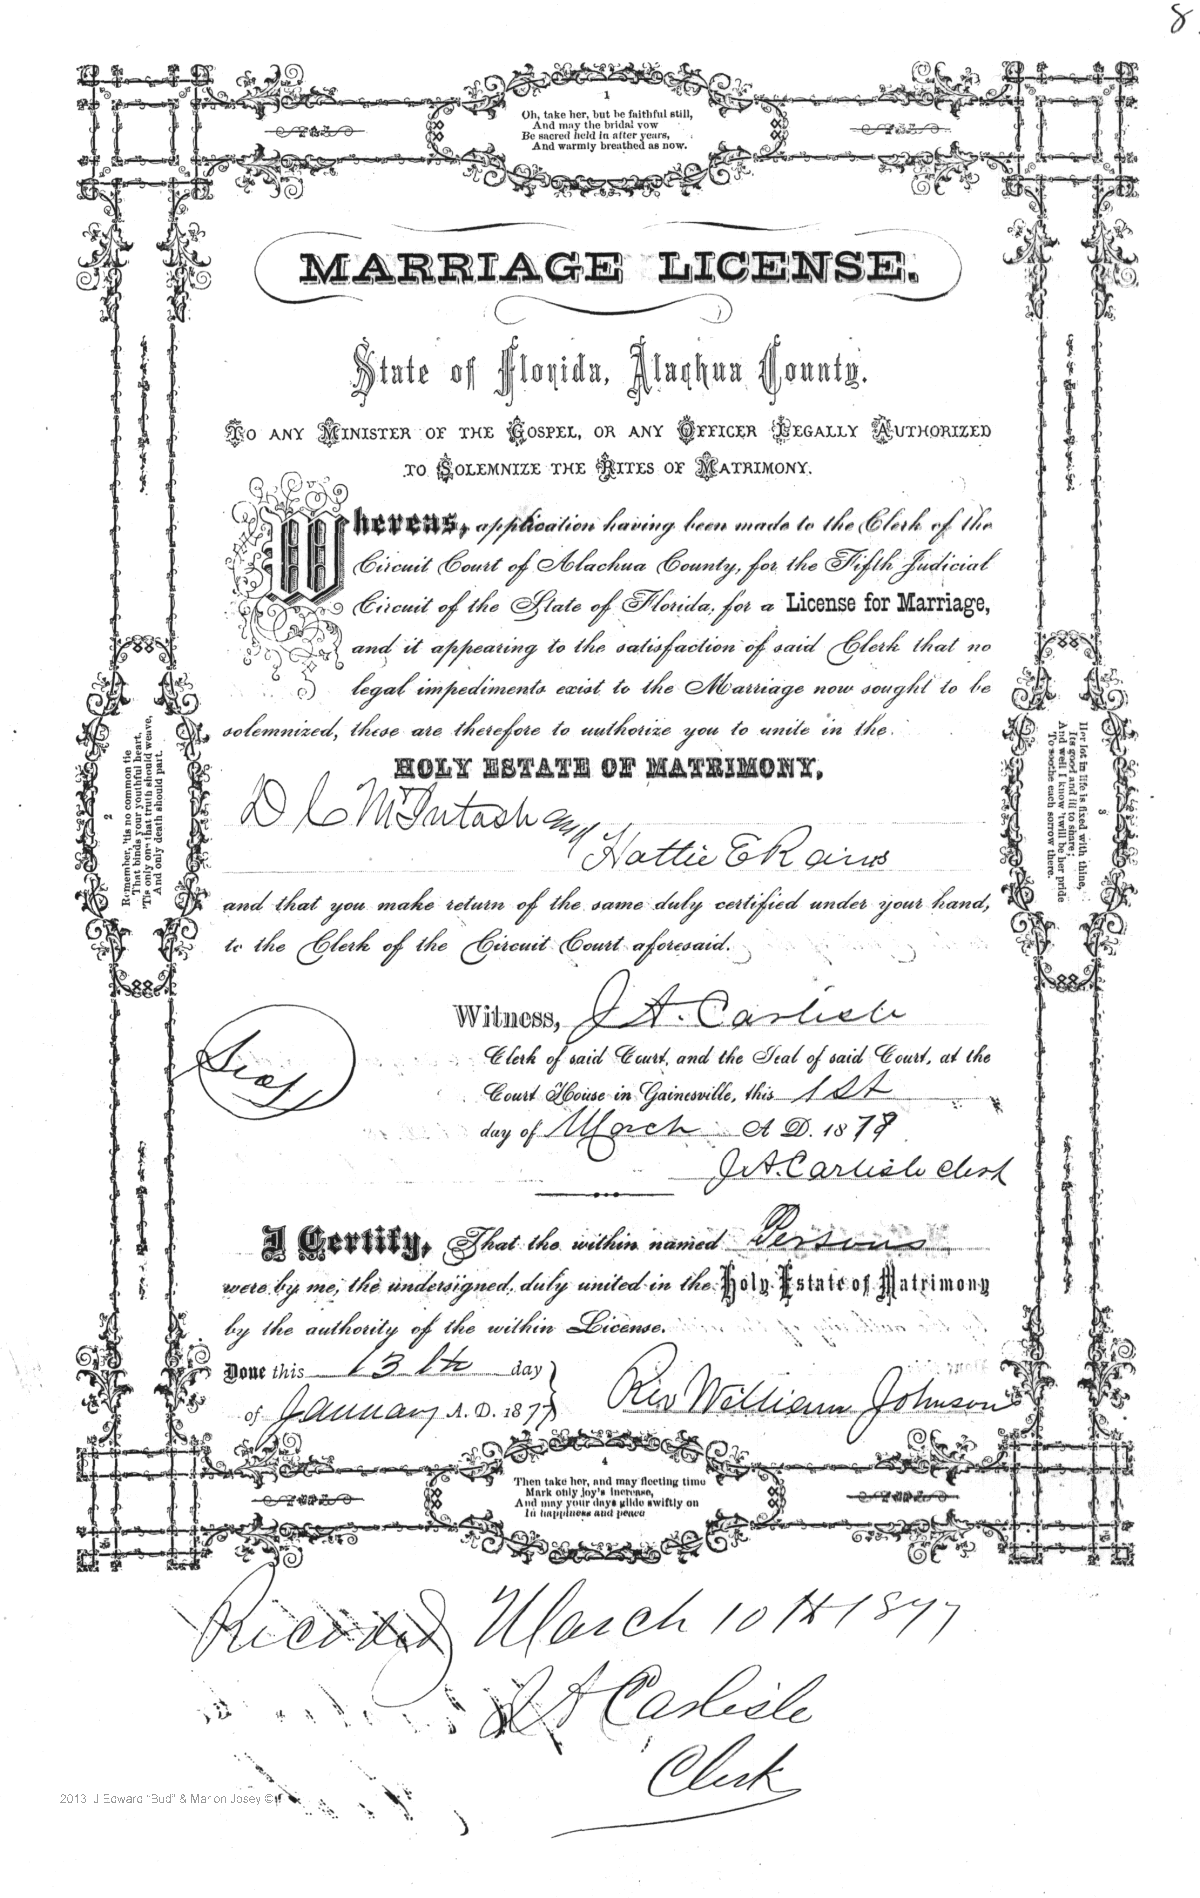 8.
1
Oh, take her, but be faithful still,
And may the bridal vow
Be sacred held in after years,
And warmly breathed as now.
MARRIAGE LICENSE.
State of Florida, Alachua County.
TO ANY MINISTER OF THE GOSPEL, OR ANY OFFICER LEGALLY AUTHORIZED
TO SOLEMNIZE THE RITES OF MATRIMONY.
Whereas, application having been made to the Clerk of the
Circuit Court of Alachua County, for the Fifth Judicial
Circuit of the State of Florida, for a License for Marriage,
and it appearing to the satisfaction of said Clerk that no
legal impediments exist to the Marriage now sought to be
solemnized, these are therefore to authorize you to unite in the
HOLY ESTATE OF MATRIMONY,
D C McIntosh and
Hattie E Rains
and that you make return of the same duly certified under your hand,
to the Clerk of the Circuit Court aforesaid.
2
Remember, 'tis no common tie
That binds your youthful heart,
'Tis only one that truth should weave,
And only death should part.
3
Her lot in life is fixed with thine,
Its good and ill to share;
And well I know 'twill be her pride
To soothe each sorrow there.
Witness, J A. Carlisle
Seal
Clerk of said Court, and the Seal of said Court, at the
Court House in Gainesville, this 1st
day of March A D. 1877
J. A. Carlisle clerk
I Certify, That the within named Persons
were by me, the undersigned, duly united in the Holy Estate of Matrimony
by the authority of the within License.
Done this 13th day
of January A. D. 1877
Rev William Johnson
4
Then take her, and may fleeting time
Mark only joy's increase,
And may your days glide swiftly on
In happiness and peace
Recorded March 10th 1877
J A Carlisle
Clerk
2013 J Edward "Bud" & Marion Josey ©